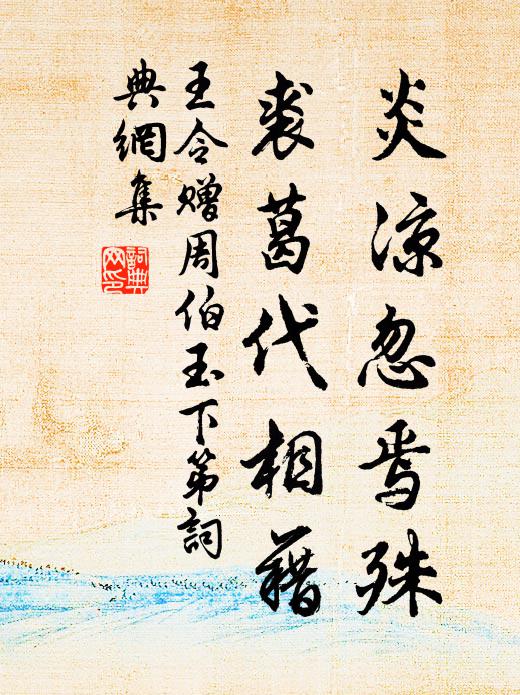 炎凉忽焉殊
裘葛代相藉
王令赠周伯玉下第詞
典網集
詞典
网印